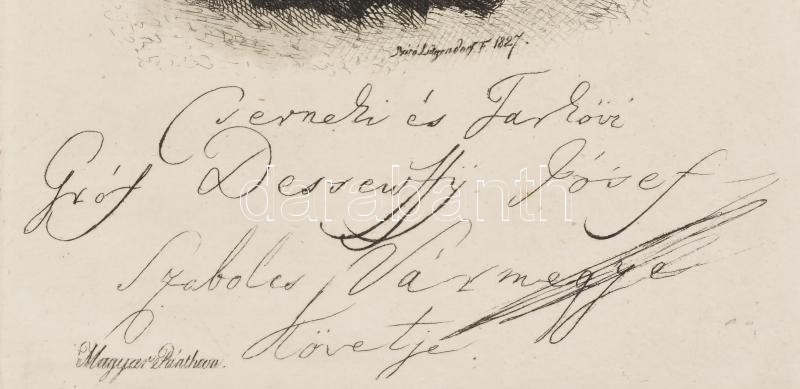 Báró Lütgendorf F. 1827.
Cserneki és Tarkövi
Gróf Dessewffÿ Jósef
Szabolcs Vármegye
Követje.
Magyar Pántheon.
darabanth